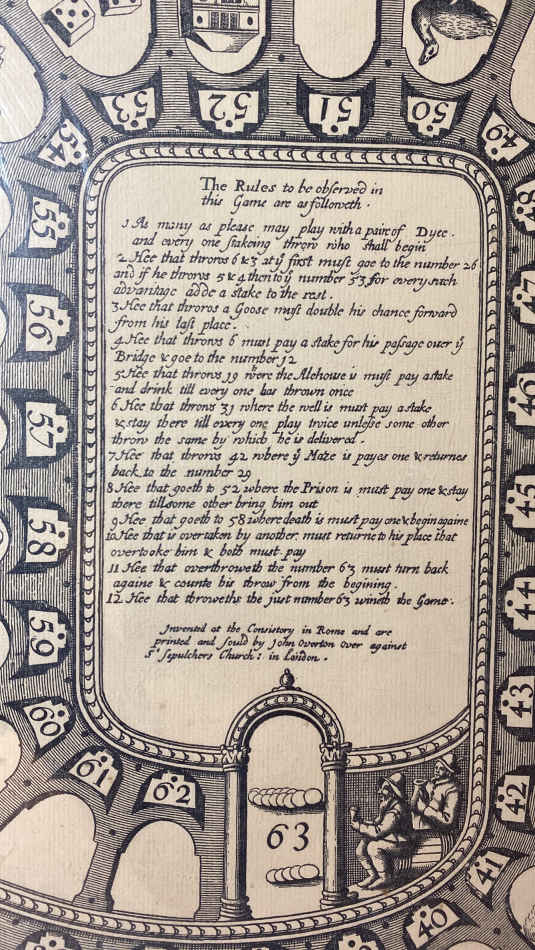 53
52
51
50
49
54
48
55
47
56
46
57
45
58
44
59
43
60
42
61
62
41
40
The Rules to be obſerved in
this Game are as followeth.
1 As many as please may play with a paire of Dyce.
and every one ſtakeing throw who ſhall begin
2 Hee that throws 6 & 3 at yͤ firſt muſt goe to the number 26
and if he throws 5 & 4 then to yͤ number 53 for every such
advantage adde a stake to the rest.
3 Hee that throws a Goose muſt double his chance forward
from his laſt place.
4 Hee that throws 6 must pay a ſtake for his paſsage over yͤ
Bridge & goe to the number 12
5 Hee that throws 19 where the Alehouse is muſt pay a ſtake
and drink till every one has thrown once
6 Hee that throws 31 where the well is must pay a ſtake
& stay there till every one play twice unleſse some other
throw the same by which he is delivered.
7 Hee that throws 42 where yͤ Maze is payes one & returnes
back to the number 29
8 Hee that goeth to 52 where the Prison is must pay one & ſtay
there till some other bring him out
9 Hee that goeth to 58 where death is must pay one & begin againe
10 Hee that is overtaken by another, must returne to his place that
overtooke him & both must pay
11 Hee that overthroweth the number 63 must turn back
againe & counte his throw from the begining.
12 Hee that throweth the just number 63 wineth the Game.
Invented at the Consistory in Rome and are
printed and sould by John Overton over against
Sᵗ Sepulchers Church: in London.
63